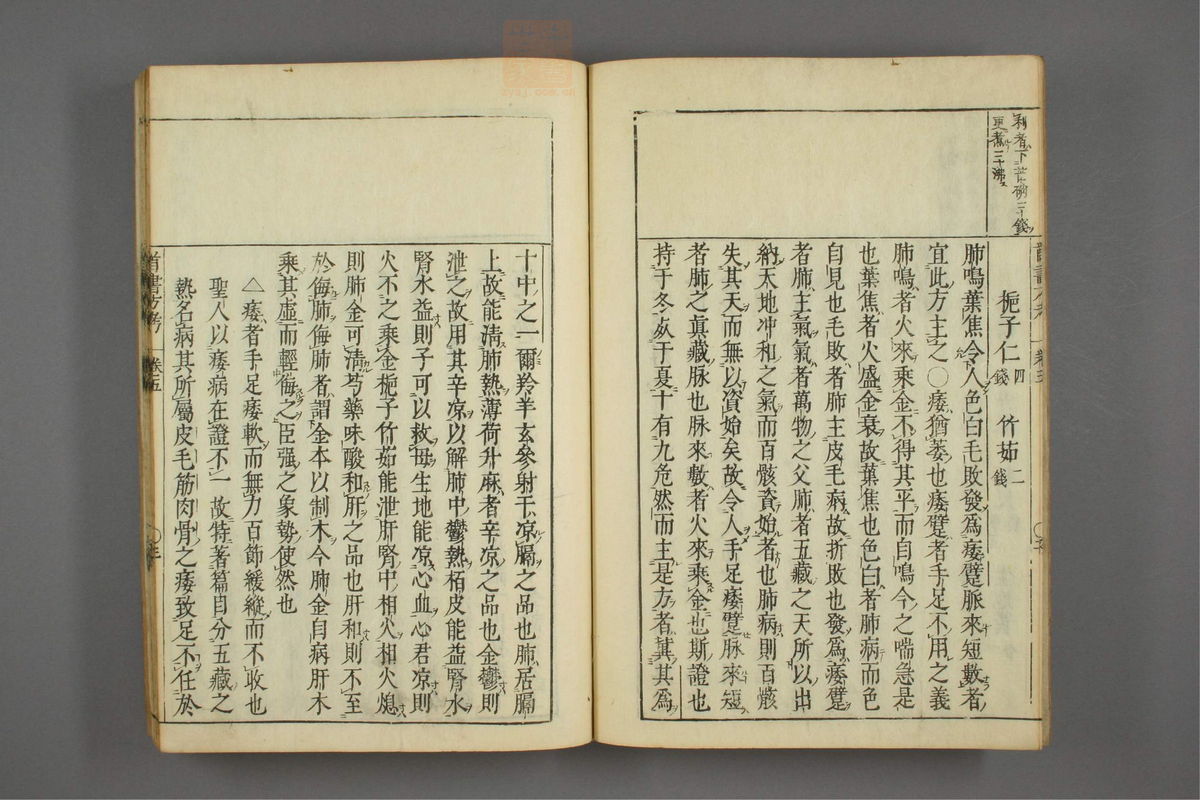 利者下芒硝三錢
更煮三十沸
梔子仁四錢 竹茹二錢
肺鳴葉焦令人色白毛敗發爲痿躄脈來短數者
宜此方主之○痿猶萎也痿躄者手足不用之義
肺鳴者火來乘金不得其平而自鳴今之喘急是
也葉焦者火盛金衰故葉焦也色白者肺病而色
自見也毛敗者肺主皮毛病故折敗也發爲痿躄
者肺主氣氣者萬物之父肺者五藏之天所以出
納太地冲和之氣而百骸資始者也肺病則百骸
失其天而無以資始矣故令人手足痿躄脉來短
者肺之眞藏脉也脉來數者火來乘金也斯證也
持于冬死于夏十有九危然而主是方者冀其爲
十中之一爾羚羊玄參射干凉膈之品也肺居膈
上故能清肺熱薄荷升麻者辛凉之品也金鬱則
泄之故用其辛凉以解肺中鬱熱栢皮能益腎水
腎水益則子可以救母生地能凉心血心君凉則
火不之乘金梔子竹茹能泄肝腎中相火相火熄
則肺金可清芍藥味酸和肝之品也肝和則不至
於侮肺侮肺者謂金本以制木今肺金自病肝木
乘其虛而輕侮之臣强之象勢使然也
△痿者手足痿軟而無力百節緩縱而不收也
聖人以痿病在證不一故特著篇目分五藏之
熱名病其所屬皮毛筋肉骨之痿致足不任於